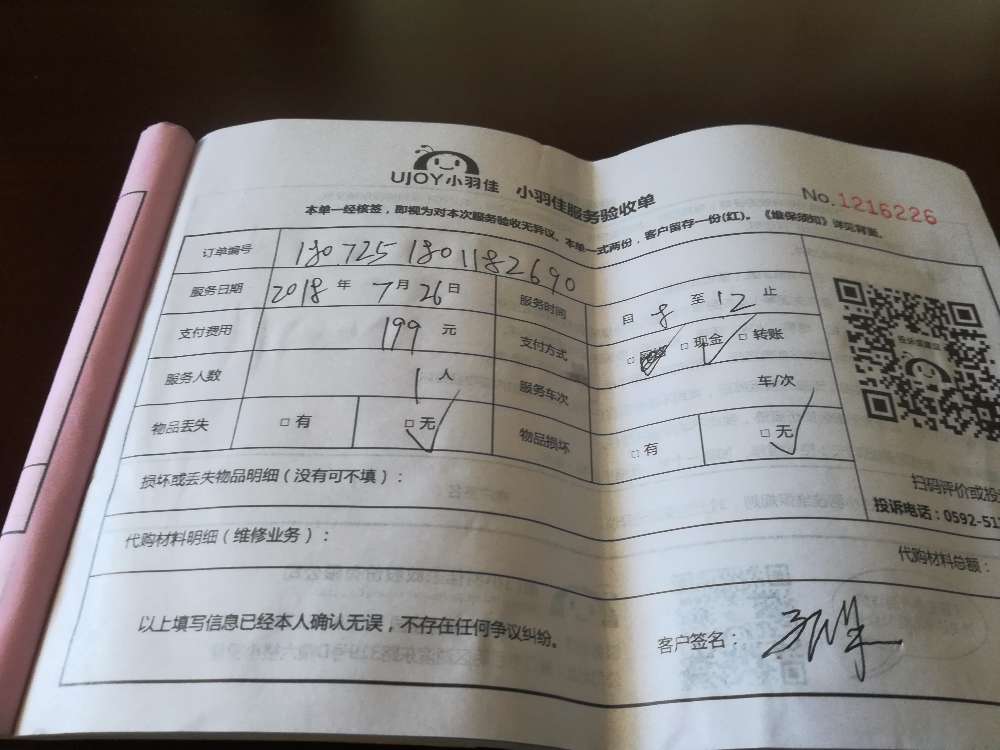 UJOY小羽佳 小羽佳服务验收单
No.1216226
本单一经核签，即视为对本次服务验收无异议。本单一式两份，客户留存一份(红)。《维保须知》详见背面。
订单编号 1807251801182690
服务日期 2018年7月26日 服务时间 自8至12止
支付费用 199元 支付方式 □ □现金 □转账
服务人数 1人 服务车次 车/次
物品丢失 □有 □无 物品损坏 □有 □无
损坏或丢失物品明细（没有可不填）：
扫码评价或投
投诉电话：0592-51
代购材料明细（维修业务）：
代购材料总额：
以上填写信息已经本人确认无误，不存在任何争议纠纷。
客户签名：